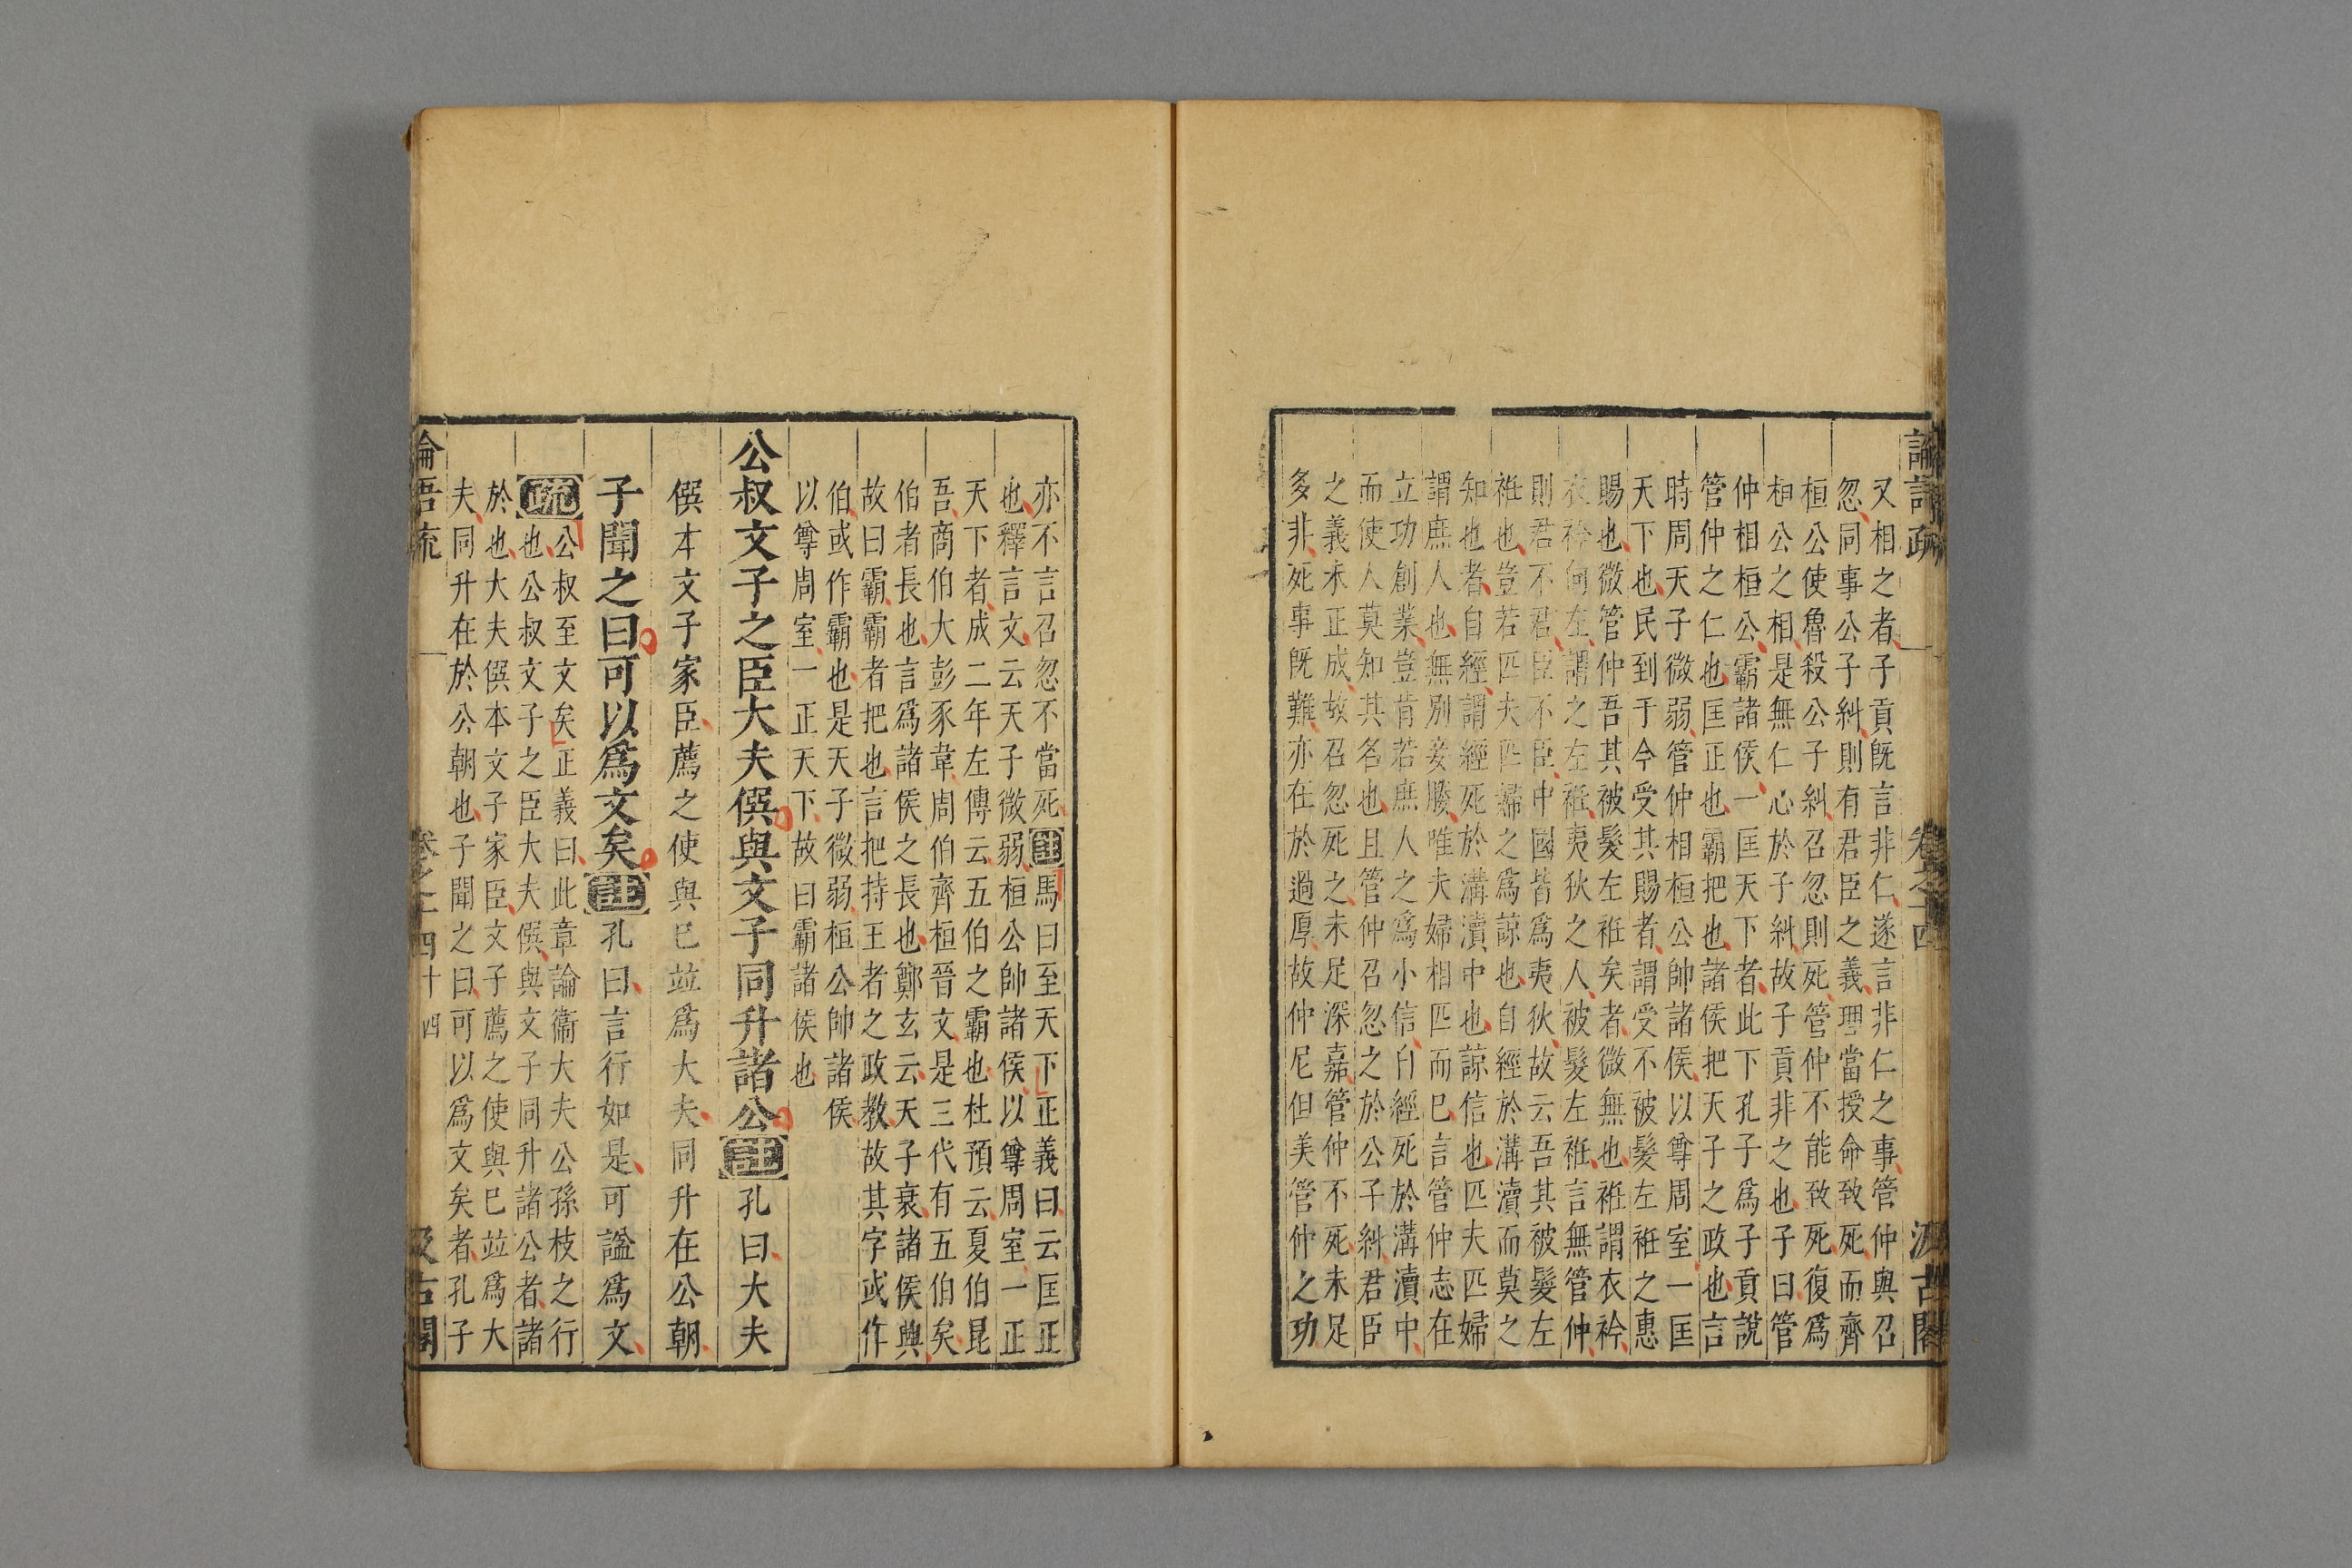 論語疏 卷之十四 汲古閣
又相之者子貢既言非仁遂言非仁之事管仲與召
忽同事公子糾則有君臣之義理當授命致死而齊
桓公使魯殺公子糾召忽則死管仲不能致死復爲
桓公之相是無仁心於子糾故子貢非之也子曰管
仲相桓公霸諸侯一匡天下者此下孔子爲子貢說
管仲之仁也匡正也霸把也諸侯把天子之政也言
時周天子微弱管仲相桓公帥諸侯以尊周室一匡
天下也民到于今受其賜者謂受不被髮左衽之惠
賜也微管仲吾其被髮左衽矣者微無也衽謂衣衿
衣衿向左謂之左衽夷狄之人被髮左衽言無管仲
則君不君臣不臣中國皆爲夷狄故云吾其被髮左
衽也豈若匹夫匹婦之爲諒也自經於溝瀆而莫之
知也者自經謂經死於溝瀆中也諒信也匹夫匹婦
謂庶人也無別妾媵唯夫婦相匹而已言管仲志在
立功創業豈肯若庶人之爲小信自經死於溝瀆中
而使人莫知其名也且管仲召忽之於公子糾君臣
之義未正成故召忽死之未足深嘉管仲不死未足
多非死事既難亦在於過厚故仲尼但美管仲之功
亦不言召忽不當死註馬曰至天下正義曰云匡正
也釋言文云天子微弱桓公帥諸侯以尊周室一正
天下者成二年左傳云五伯之霸也杜預云夏伯昆
吾商伯大彭豕韋周伯齊桓晉文是三代有五伯矣
伯者長也言爲諸侯之長也鄭玄云天子衰諸侯興
故曰霸霸者把也言把持王者之政教故其字或作
伯或作霸也是天子微弱桓公帥諸侯
以尊周室一正天下故曰霸諸侯也
公叔文子之臣大夫僎與文子同升諸公註孔曰大夫
僎本文子家臣薦之使與已並爲大夫同升在公朝
子聞之曰可以爲文矣註孔曰言行如是可謚爲文
疏公叔至文矣正義曰此章論衞大夫公孫枝之行
也公叔文子之臣大夫僎與文子同升諸公者諸
於也大夫僎本文子家臣文子薦之使與已並爲大
夫同升在於公朝也子聞之曰可以爲文矣者孔子
論語疏 卷之十四 十四 汲古閣